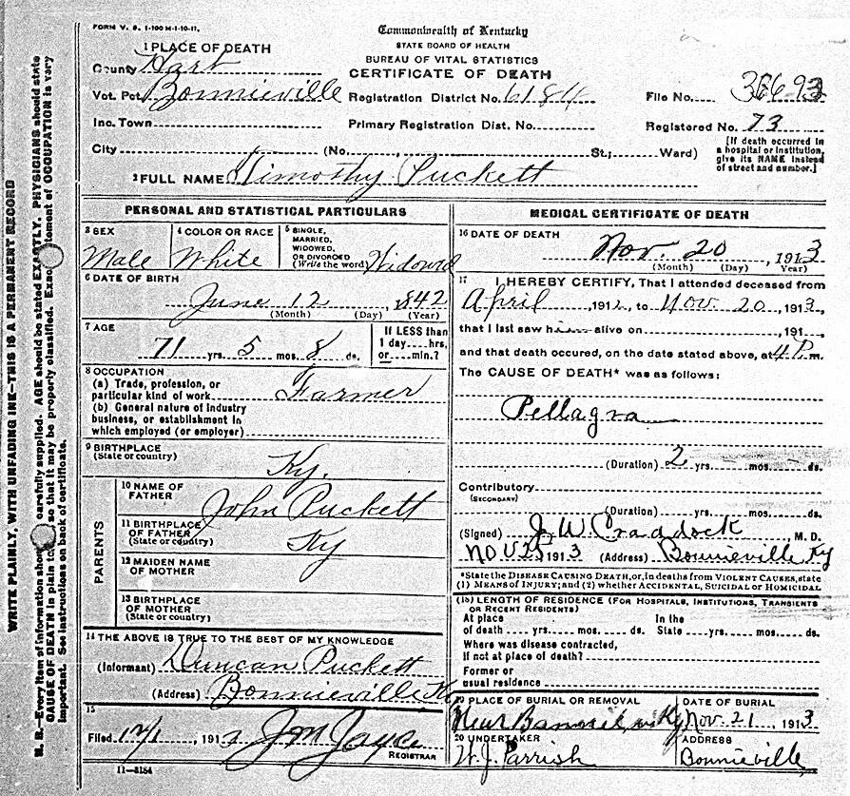 FORM V. S. 1-100 M-1-10-11.
Commonwealth of Kentucky
STATE BOARD OF HEALTH
BUREAU OF VITAL STATISTICS
CERTIFICATE OF DEATH
1 PLACE OF DEATH
County Hart
Vot. Pct. Bonnieville Registration District No. 6184 File No.
Inc. Town Primary Registration Dist. No. Registered No. 73
City (No. , St.; Ward)
[If death occurred in a hospital or institution, give its NAME instead of street and number.]
2 FULL NAME Timothy Puckett
PERSONAL AND STATISTICAL PARTICULARS
3 SEX Male
4 COLOR OR RACE White
5 SINGLE, MARRIED, WIDOWED, OR DIVORCED (Write the word) Widowed
6 DATE OF BIRTH
June 12, 1842
(Month) (Day) (Year)
7 AGE
71 yrs. 5 mos. 8 ds.
If LESS than 1 day....hrs. or....min.?
8 OCCUPATION
(a) Trade, profession, or particular kind of work Farmer
(b) General nature of industry business, or establishment in which employed (or employer)
9 BIRTHPLACE
(State or country) Ky.
PARENTS
10 NAME OF FATHER John Puckett
11 BIRTHPLACE OF FATHER (State or country) Ky
12 MAIDEN NAME OF MOTHER
13 BIRTHPLACE OF MOTHER (State or country)
14 THE ABOVE IS TRUE TO THE BEST OF MY KNOWLEDGE
(Informant) Duncan Puckett
(Address) Bonnieville Ky
15
Filed 12/1, 191
REGISTRAR
11-3184
MEDICAL CERTIFICATE OF DEATH
16 DATE OF DEATH
Nov. 20, 1913
(Month) (Day) (Year)
17 I HEREBY CERTIFY, That I attended deceased from
April 1912, to Nov. 20, 1913,
that I last saw him alive on, 191
and that death occured, on the date stated above, at 4 P.m.
The CAUSE OF DEATH* was as follows:
Pellagra
(Duration) 2 yrs. mos. ds.
Contributory
(SECONDARY)
(Duration) yrs. mos. ds.
(Signed) J. W. Craddock M. D.
Nov 25, 1913 (Address) Bonnieville, Ky
*State the DISEASE CAUSING DEATH, or, in deaths from VIOLENT CAUSES, state
(1) MEANS OF INJURY; and (2) whether ACCIDENTAL, SUICIDAL or HOMICIDAL
(18) LENGTH OF RESIDENCE (FOR HOSPITALS, INSTITUTIONS, TRANSIENTS OR RECENT RESIDENTS)
At place of death yrs. mos. ds. In the State yrs. mos. ds.
Where was disease contracted,
if not at place of death?
Former or
usual residence
19 PLACE OF BURIAL OR REMOVAL
Near Ky
DATE OF BURIAL
Nov. 21, 1913
20 UNDERTAKER
W. J. Parrish
ADDRESS
Bonnieville
WRITE PLAINLY, WITH UNFADING INK—THIS IS A PERMANENT RECORD
N. B.—Every item of information should be carefully supplied. AGE should be stated EXACTLY. PHYSICIANS should state
CAUSE OF DEATH in plain so that it may be properly classified. Exact statement of OCCUPATION is very
important. See instructions on back of certificate.